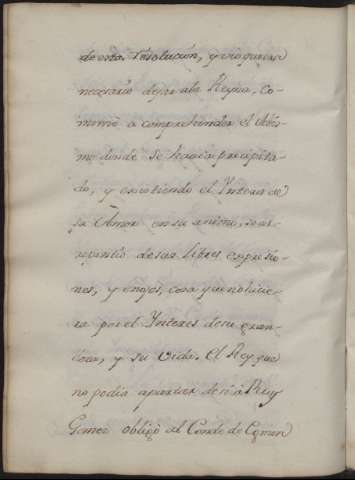 de esta resolucion, y viò que era
necesario dejar à la Reyna. Co-
menzò à comprehender el Abis-
mo donde se havia precipita-
do, y excitando el Interes de
su Amor en su animo, se ar-
repintiò de sus libres expresio-
nes, y enojos, cosa que no hicie-
ra por el Interes de su gran-
deza, y su vida. El Rey que
no podia apartar de si à Ruy
Gomez obligò al Conde de